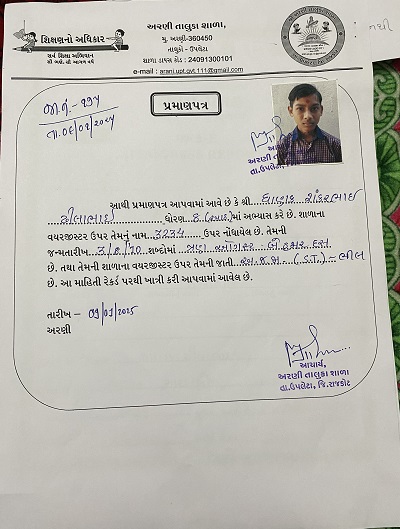 શિક્ષણનો અધિકાર
સર્વ શિક્ષા અભિયાન
સૌ ભણે, સૌ આગળ વધે
અરણી તાલુકા શાળા,
મુ. અરણી-360450
તાલુકો - ઉપલેટા
શાળા ડાયસ કોડ : 24091300101
e-mail : arani.upt.gvt.111@gmail.com
જા.નં.-
પ્રમાણપત્ર
આથી પ્રમાણપત્ર આપવામાં આવે છે કે શ્રી
ધોરણ 8 માં અભ્યાસ કરે છે. શાળાના
વયરજીસ્ટર ઉપર તેમનું નામ 3234 ઉપર નોંધાયેલ છે. તેમની
જન્મતારીખ 3/8/10 શબ્દોમાં ત્રણ ઓગસ્ટ - બે હજાર દસ
છે. તથા તેમની શાળાના વયરજીસ્ટર ઉપર તેમની જાતી (S.T.) - ભીલ
છે. આ માહિતી રેકર્ડ પરથી ખાત્રી કરી આપવામાં આવેલ છે.
તારીખ –
અરણી
આચાર્ય,
અરણી તાલુકા શાળા
તા.ઉપલેટા, જિ.રાજકોટ